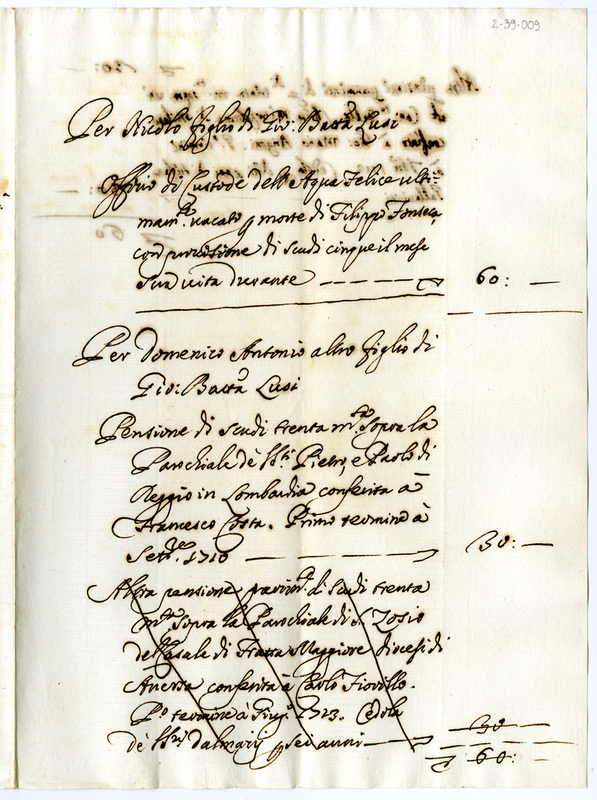 2-39-009
Per Nicolò figlio di Gio: Batta Lusi
Offitio di Custode dell'Aqua Felice ulti=
mam.te vacato p morte di Filippo Fonseca,
con provisione di scudi cinque il mese
sua vita durante 60:
Per Domenico Antonio altro figlio di
Gio: Batta Lusi
Pensione di scudi trenta m.ta sopra la
Parochiale de SS.ti Pietro, e Paolo di
Reggio in Lombardia conferita à
Francesco Costa. Primo termine à
Sett.re 1710 30:
Altra pensione parim.te di scudi trenta
m.ta sopra la Parochiale di S. Zosio
del Casale di Fratta Maggiore diocesi di
Aversa conferita à Paolo Fiorillo.
P.o termine à Giug.o 1713. Cedola
de SS.ri Dalmarij p sei anni 30
60: